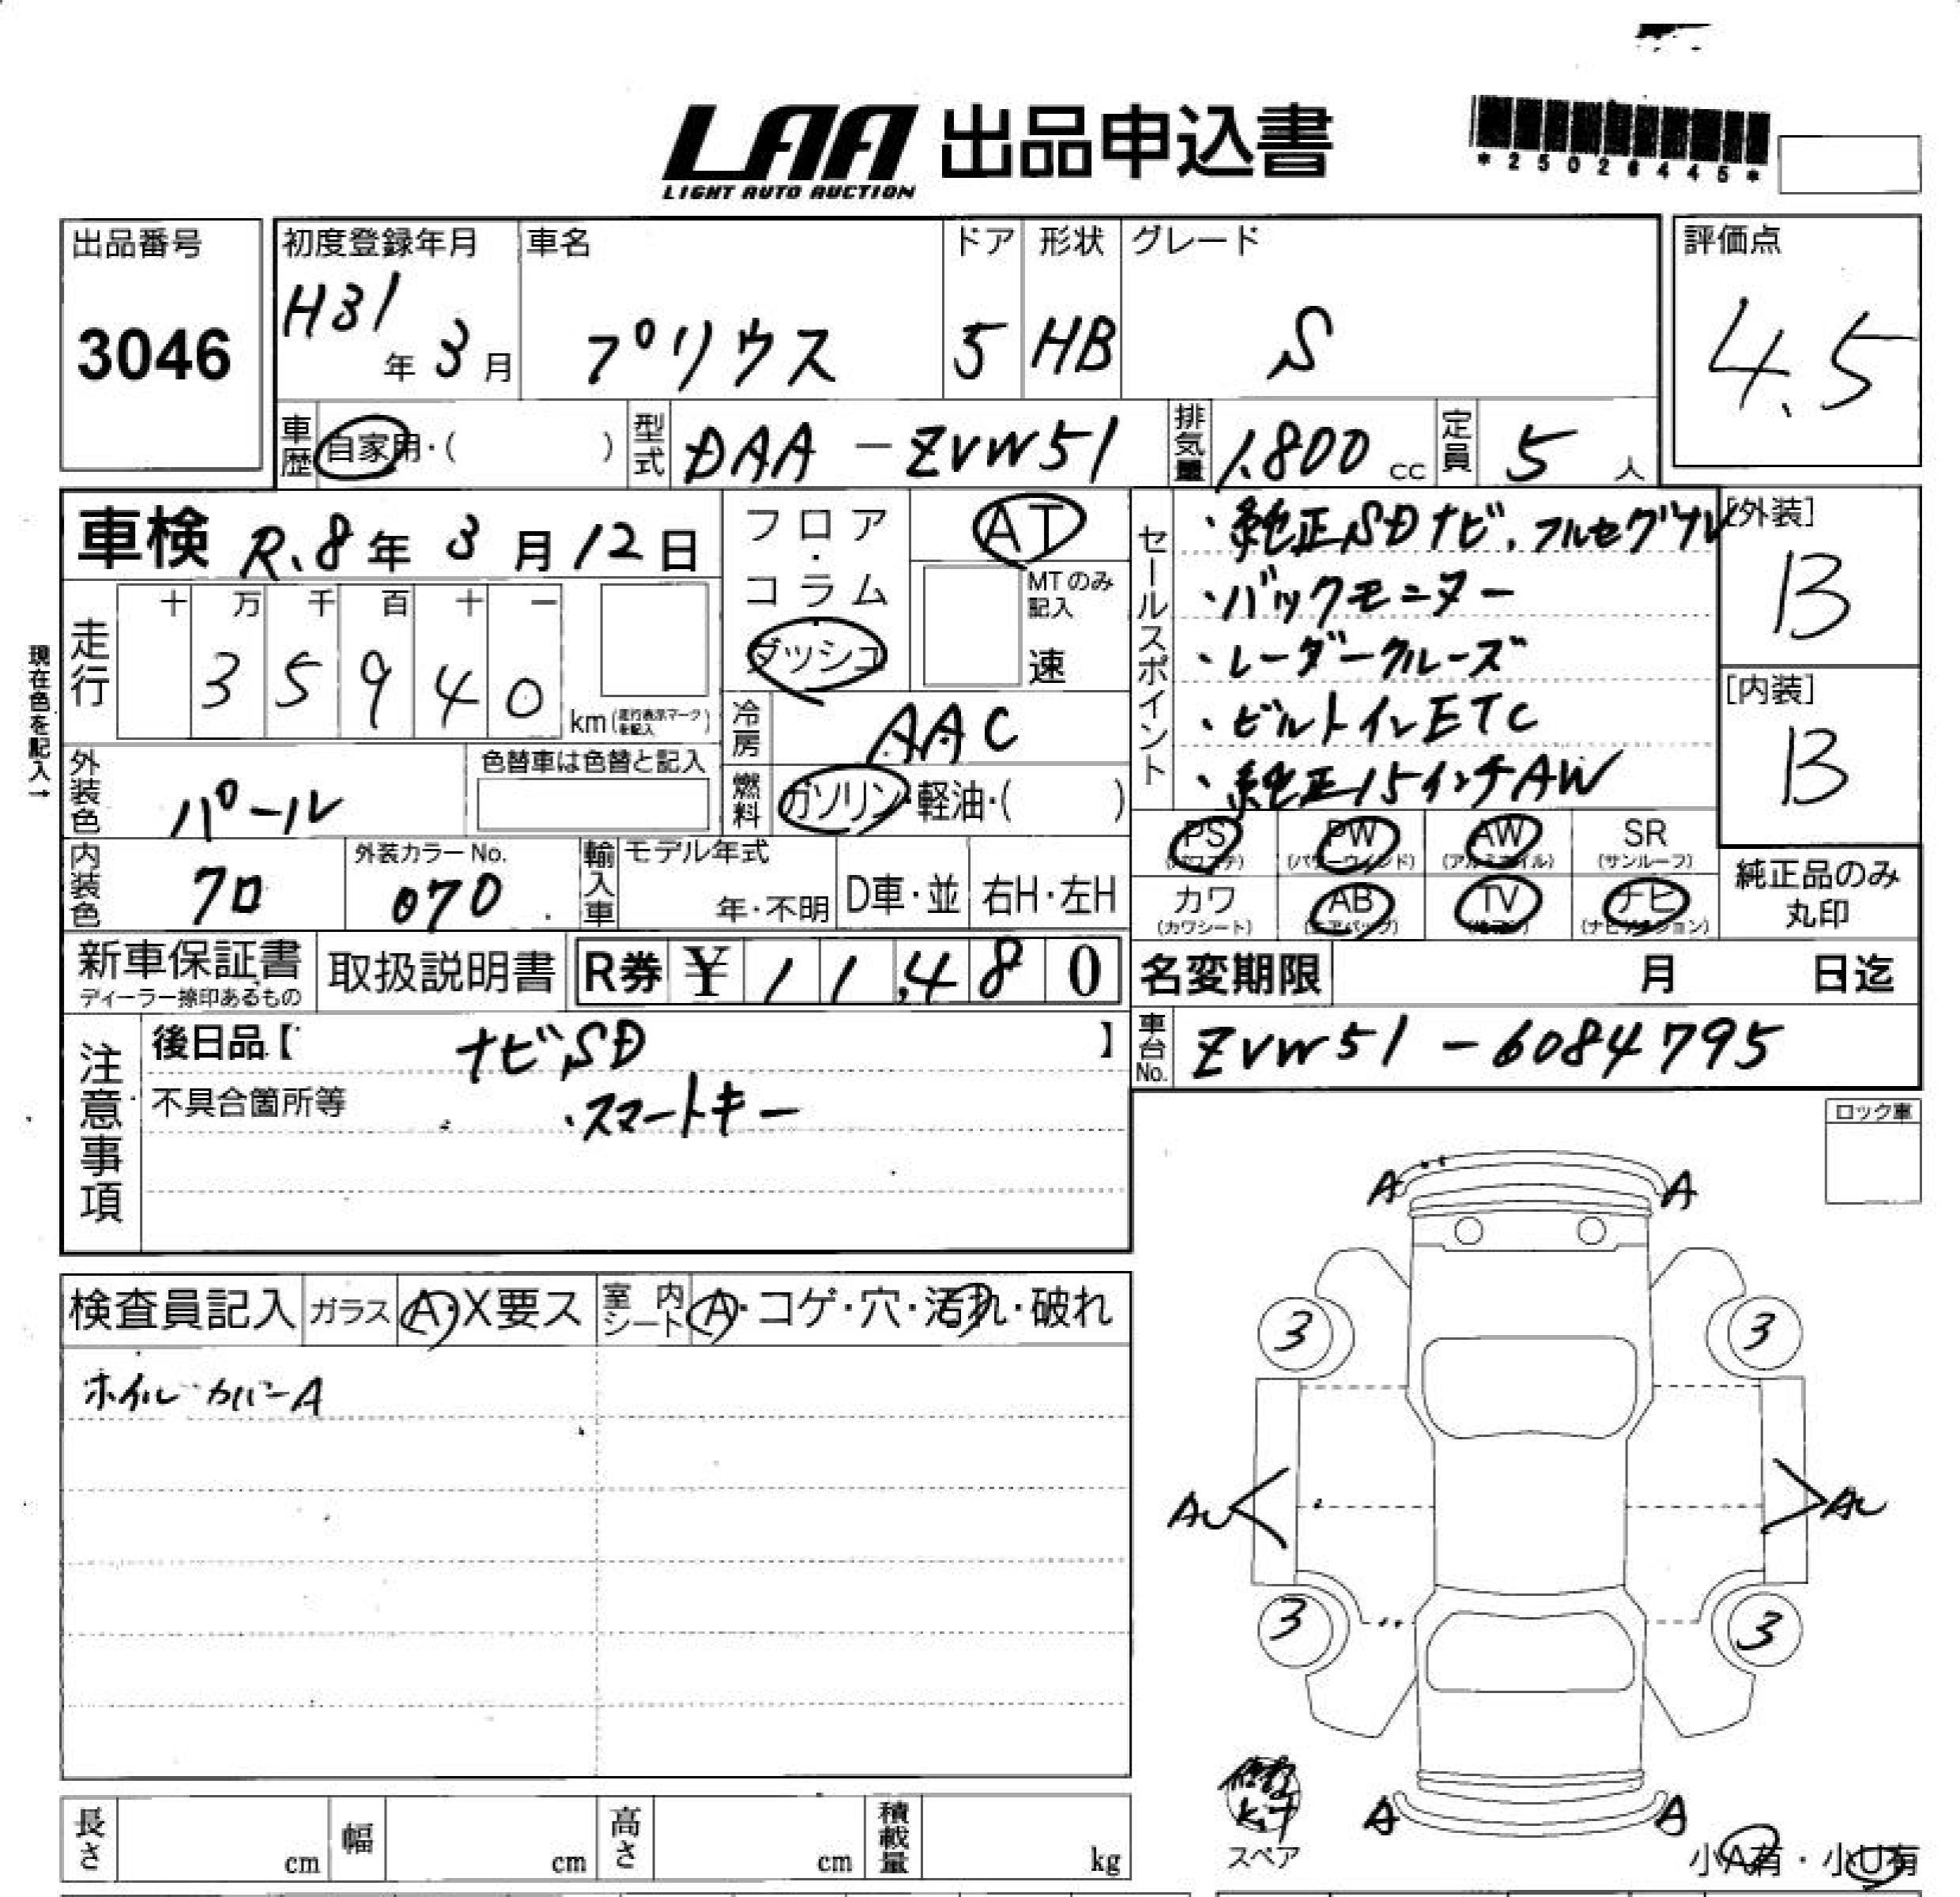 LAA 出品申込書
LIGHT AUTO AUCTION
*25026445*
出品番号
3046
初度登録年月
H31年 3月
車名
プリウス
ドア
5
形状
HB
グレード
S
評価点
4.5
車歴 自家用・( )
型式 DAA-ZVW51
排気量 1,800 cc
定員 5 人
車検 R.8年 3月12日
フロア・コラム・ダッシュ
AT
MTのみ記入
速
走行
十万千百十一
35940
km(走行表示マークを記入)
現在色を記入→
冷房 AAC
外装色 パール
色替車は色替と記入
燃料 ガソリン・軽油・( )
内装色 クロ
外装カラーNo.
070
輸入車
モデル年式
年・不明
D車・並
右H・左H
セールスポイント
・純正SDナビ、フルセグTV
・バックモニター
・レーダークルーズ
・ビルトインETC
・純正15インチAW
[外装]
B
[内装]
B
PS (パワステ)
PW (パワーウィンド)
AW (アルミホイル)
SR (サンルーフ)
カワ (カワシート)
AB (エアバッグ)
TV (テレビ)
ナビ (ナビゲーション)
純正品のみ丸印
新車保証書
ディーラー捺印あるもの
取扱説明書
R券 ¥11,480
名変期限 月 日迄
車台No. ZVW51-6084795
注意事項
後日品【 ナビSD 】
不具合箇所等 ・スマートキー
ロック車
検査員記入
ガラス A・X要ス
室内シート A・コゲ・穴・汚れ・破れ
ホイルカバーA
A A
3 3
AU AU
3 3
A A
スペア
小A有・小U有
長さ cm
幅 cm
高さ cm
積載量 kg